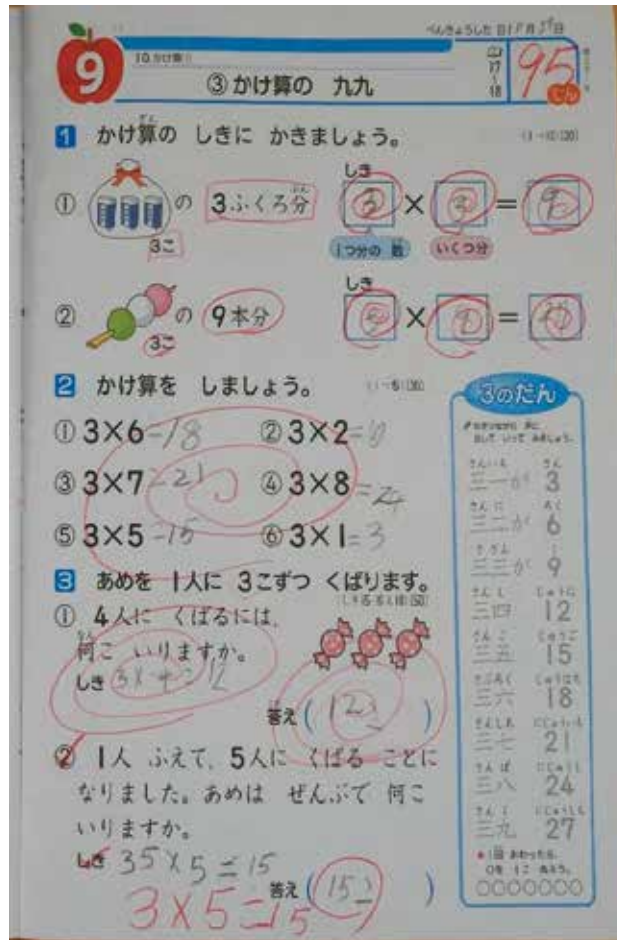 べんきょうした日 月 日
9
10.かけ算
③かけ算の 九九
17
18
95
てん
1 かけ算の しきに かきましょう。
しき
① の 3ふくろ分 3 × 3 = 9
3こ
1つ分の 数 いくつ分
しき
② の 9本分 × 9 =
3こ
2 かけ算を しましょう。
① 3×6=18 ② 3×2=6
③ 3×7=21 ④ 3×8=24
⑤ 3×5=15 ⑥ 3×1=3
3 あめを 1人に 3こずつ くばります。
① 4人に くばるには、
何こ いりますか。
しき 3×4=12
答え(12こ)
② 1人 ふえて、5人に くばる ことに
なりました。あめは ぜんぶで 何こ
いりますか。
しき 35×5=15
答え(15こ)
3×5=15
3のだん
さんいち さん
三一が 3
さんに ろく
三二が 6
さざん く
三三が 9
さんし じゅうに
三四 12
さんご じゅうご
三五 15
さぶろく じゅうはち
三六 18
さんしち にじゅういち
三七 21
さんぱ にじゅうし
三八 24
さんく にじゅうしち
三九 27
1回 おわったら、
○を 1こ ぬろう。